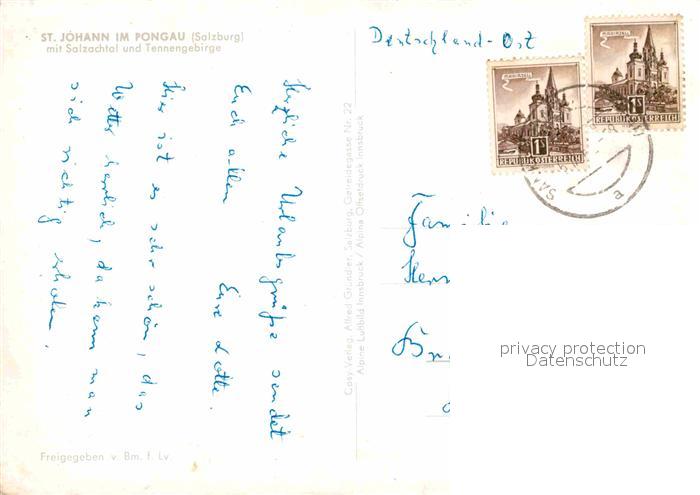 ST. JOHANN IM PONGAU (Salzburg)
mit Salzachtal und Tennengebirge
Herzliche Urlaubsgrüße sendet
Euch allen Eure Lotte.
Hier ist es sehr schön, das
Wetter herrlich, da kann man
sich richtig erholen.
Freigegeben v. Bm. f. Lv.
Cosy-Verlag, Alfred Gründler, Salzburg, Getreidegasse Nr. 22
Alpine Luftbild Innsbruck / Alpine Offsetdruck Innsbruck
Deutschland-Ost
MARIAZELL
1S
REPUBLIK ÖSTERREICH
MARIAZELL
1S
REPUBLIK ÖSTERREICH
a
Famili
Herr
privacy protection
Datenschutz